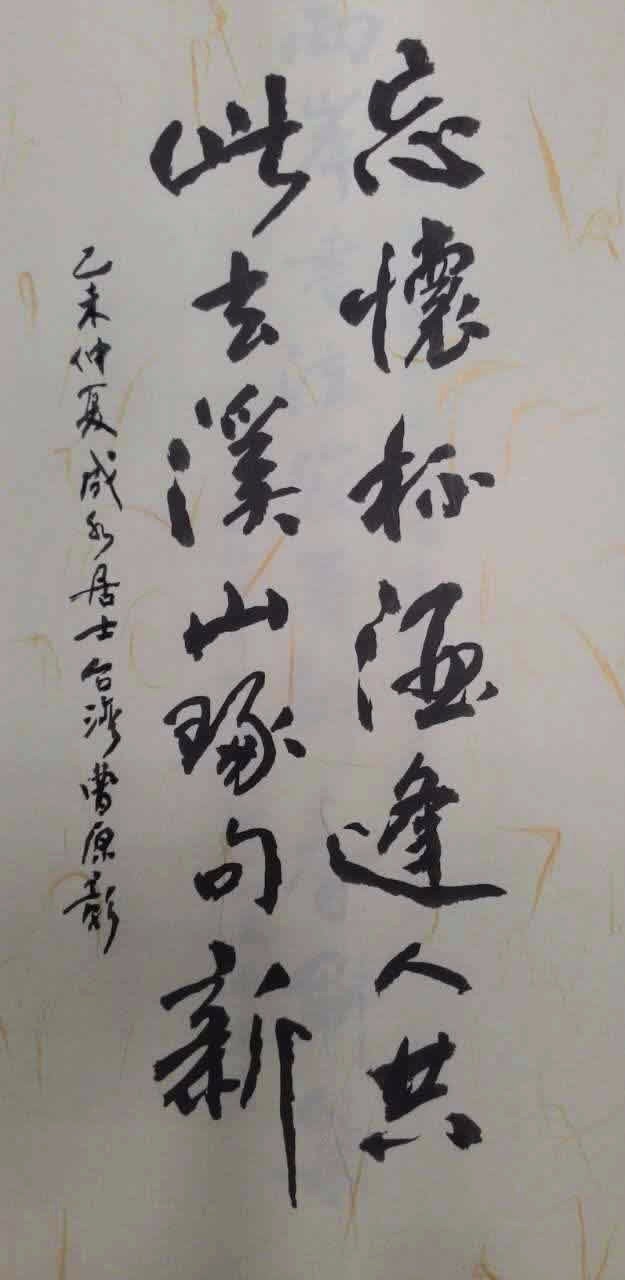 忘懷杯酒逢人共
此去溪山琢句新
乙未仲夏成永居士台灣曹原彰